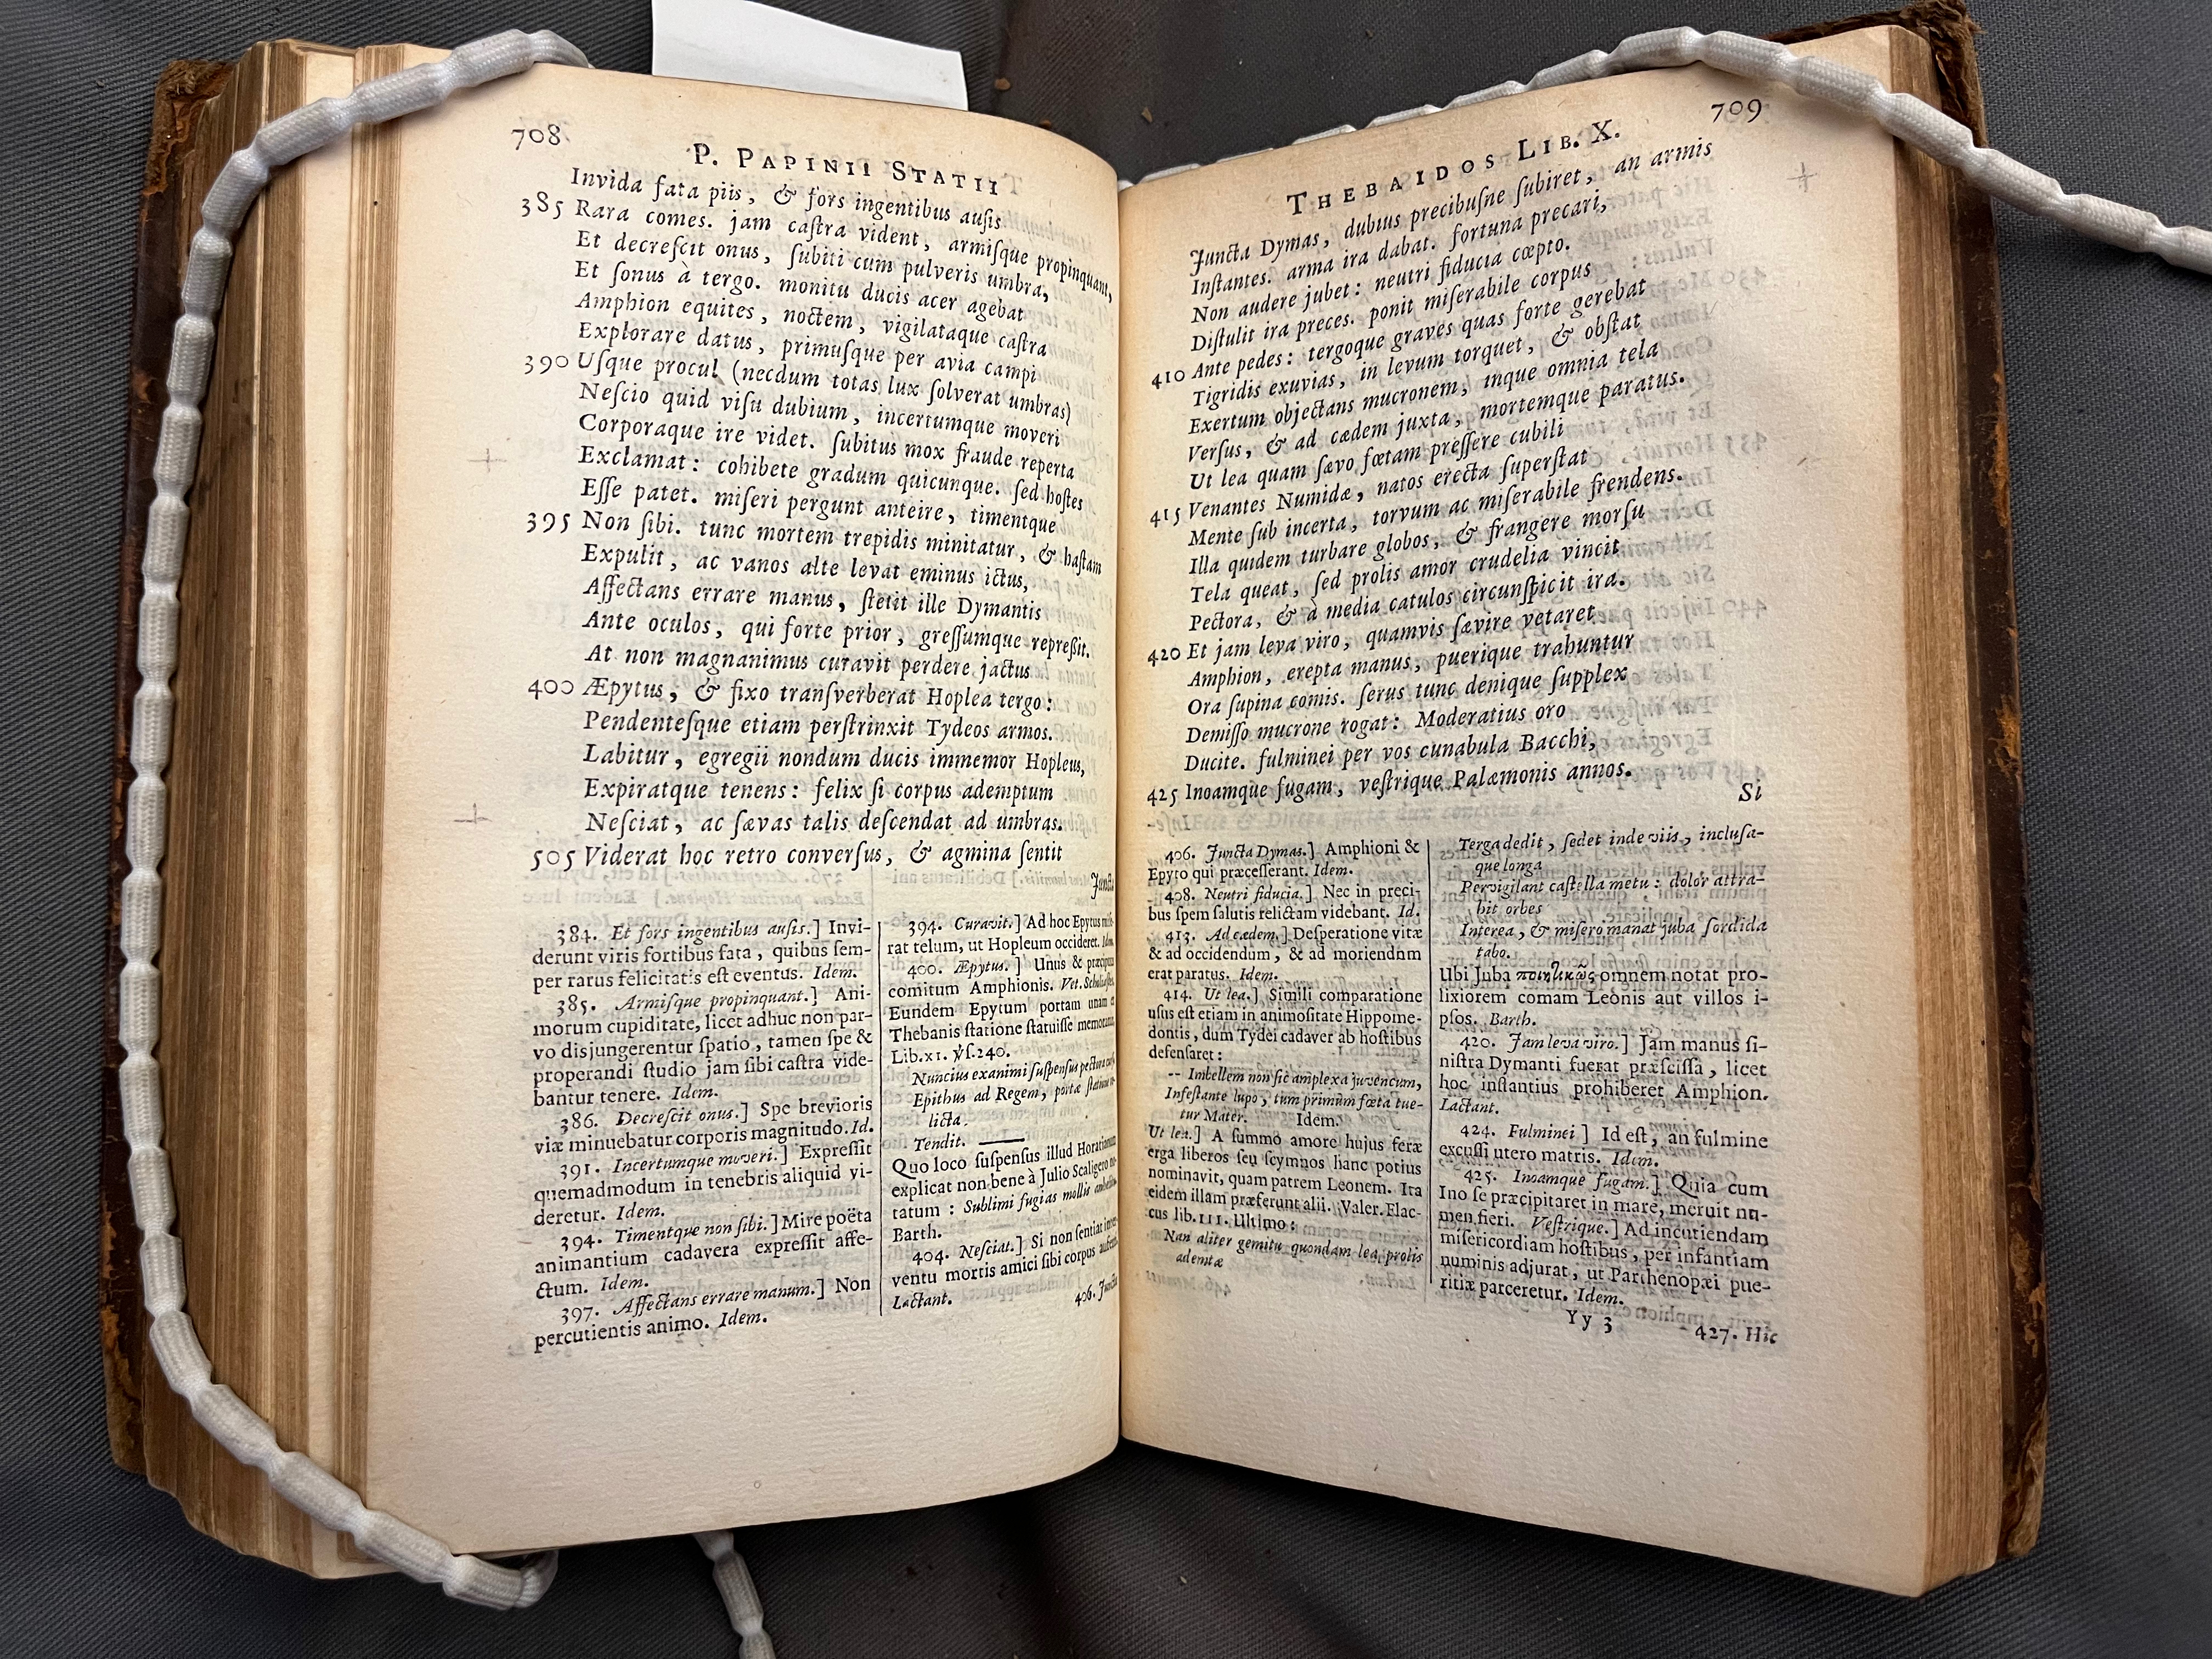 708
P. PAPINII STATII
Invida fata piis, & fors ingentibus ausis
385 Rara comes. jam castra vident, armiſque propinquant,
Et decreſcit onus, ſubiti cum pulveris umbra,
Et ſonus à tergo. monitu ducis acer agebat
Amphion equites, noctem, vigilataque caſtra
Explorare datus, primuſque per avia campi
390 Uſque procul (necdum totas lux ſolverat umbras)
Neſcio quid viſu dubium, incertumque moveri
Corporaque ire videt. ſubitus mox fraude reperta
Exclamat: cohibete gradum quicunque. ſed hoſtes
Eſſe patet. miſeri pergunt anteire, timentque
395 Non ſibi. tunc mortem trepidis minitatur, & haſtam
Expulit, ac vanos alte levat eminus ictus,
Affectans errare manus, ſtetit ille Dymantis
Ante oculos, qui forte prior, greſſumque repreßit.
At non magnanimus curavit perdere jactus
400 Æpytus, & fixo tranſverberat Hoplea tergo:
Pendenteſque etiam perſtrinxit Tydeos armos.
Labitur, egregii nondum ducis immemor Hopleus,
Expiratque tenens: felix ſi corpus ademptum
Neſciat, ac ſævas talis deſcendat ad umbras.
505 Viderat hoc retro converſus, & agmina ſentit
Juncta
384. Et fors ingentibus auſis.] Invi-
derunt viris fortibus fata, quibus ſem-
per rarus felicitatis eſt eventus. Idem.
385. Armiſque propinquant.] Ani-
morum cupiditate, licet adhuc non par-
vo disjungerentur ſpatio, tamen ſpe &
properandi ſtudio jam ſibi caſtra vide-
bantur tenere. Idem.
386. Decreſcit onus.] Spe brevioris
viæ minuebatur corporis magnitudo. Id.
391. Incertumque moveri.] Expreſſit
quemadmodum in tenebris aliquid vi-
deretur. Idem.
394. Timentque non ſibi.] Mire poëta
animantium cadavera expreſſit affe-
ctum. Idem.
397. Affectans errare manum.] Non
percutientis animo. Idem.
394. Curavit.] Ad hoc Epytus miſe-
rat telum, ut Hopleum occideret. Idem.
400. Æpytus.] Unus & præcipuus
comitum Amphionis. Vet. Scholiaſtes.
Eundem Epytum portam unam e
Thebanis ſtatione ſtatuiſſe memorat
Lib. XI. ỳſ. 240.
Nuncius exanimi ſuſpenſus pectora
Epithus ad Regem, portæ ſtatione re-
licta
Tendit. ——
Quo loco ſuſpenſus illud Horatianum
explicat non bene à Julio Scaligero no-
tatum: Sublimi fugias mollis anhelitu.
Barth.
404. Neſciat.] Si non ſentiat inter-
ventu mortis amici ſibi corpus auferri.
Lactant.
406. Juncta
709
THEBAIDOS LIB. X.
Juncta Dymas, dubius precibuſne ſubiret, an armis
Inſtantes. arma ira dabat. fortuna precari,
Non audere jubet: neutri fiducia cœpto.
Diſtulit ira preces. ponit miſerabile corpus
Ante pedes: tergoque graves quas forte gerebat
410 Tigridis exuvias, in levum torquet, & obſtat
Exertum objectans mucronem, inque omnia tela
Verſus, & ad cædem juxta, mortemque paratus.
Ut lea quam ſævo fœtam preſſere cubili
Venantes Numidæ, natos erecta ſuperſtat
415 Mente ſub incerta, torvum ac miſerabile frendens.
Illa quidem turbare globos, & frangere morſu
Tela queat, ſed prolis amor crudelia vincit
Pectora, & à media catulos circunſpicit ira.
Et jam leva viro, quamvis ſævire vetaret
420 Amphion, erepta manus, puerique trahuntur
Ora ſupina comis. ſerus tunc denique ſupplex
Demiſſo mucrone rogat: Moderatius oro
Ducite. fulminei per vos cunabula Bacchi,
425 Inoamque fugam, veſtrique Palæmonis annos.
Si
406. Juncta Dymas.] Amphioni &
Epyto qui præceſſerant. Idem.
408. Neutri fiducia.] Nec in preci-
bus ſpem ſalutis relictam videbant. Id.
413. Ad cædem.] Deſperatione vitæ
& ad occidendum, & ad moriendnm
erat paratus. Idem.
414. Ut lea.] Simili comparatione
uſus eſt etiam in animoſitate Hippome-
dontis, dum Tydei cadaver ab hoſtibus
defenſaret:
-- Imbellem non ſic amplexa juvencum,
Infeſtante lupo, tum primùm fœta tue-
tur Mater. Idem.
Ut lea.] A ſummo amore hujus feræ
erga liberos ſeu ſcymnos hanc potius
nominavit, quam patrem Leonem. Ita
eidem illam præferunt alii. Valer. Flac-
cus lib. III. Ultimo:
Nan aliter gemitu quondam lea prolis
ademtæ
Terga dedit, ſedet inde viis, incluſa-
que longa
Pervigilant caſtella metu: dolor attra-
hit orbes
Interea, & miſero manat juba ſordida
tabo.
Ubi Juba ποιητικῶς omnem notat pro-
lixiorem comam Leonis aut villos i-
pſos. Barth.
420. Jam leva viro.] Jam manus ſi-
niſtra Dymanti fuerat præſciſſa, licet
hoc inſtantius prohiberet Amphion.
Lactant.
424. Fulminei] Id eſt, an fulmine
excuſſi utero matris. Idem.
425. Inoamque fugam.] Quia cum
Ino ſe præcipitaret in mare, meruit nu-
men fieri. Veſtrique.] Ad incutiendam
miſericordiam hoſtibus, per infantiam
numinis adjurat, ut Parthenopæi pue-
ritiæ parceretur. Idem.
Yy 3
427. Hic